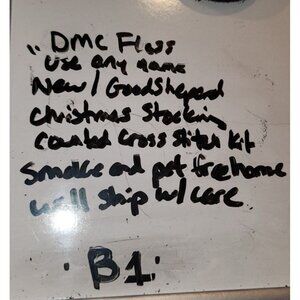 " DMC Floss
use any name
New / Good Sheperd
Christmas Stocking
counted cross stitch kit
smoke and pet free home
will ship w/ care
B1